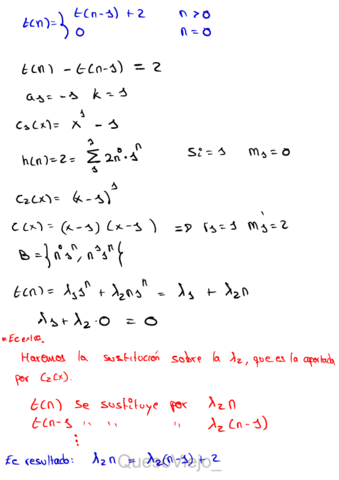 t(n)= { t(n-1) + 2 n>0
0 n=0
t(n) - t(n-1) = 2
a₁= -1 k=1
C₁(x)= x¹ - 1
h(n)=2= Σ 2n⁰·1ⁿ Si=1 m₁=0
C₂(x)= (x-1)¹
C(x)= (x-1)(x-1) => r₁=1 m₁'=2
B= {n⁰1ⁿ, n¹1ⁿ}
t(n)= λ₁1ⁿ + λ₂n1ⁿ = λ₁ + λ₂n
λ₁+λ₂·0 = 0
*Ec extra.
Haremos la sustitución sobre la λ₂, que es la aportada
por C₂(x).
t(n) se sustituye por λ₂n
t(n-1 " " " λ₂(n-1)
⋮
Ec resultado: λ₂n = λ₂(n-1) + 2
QuesoViejo_